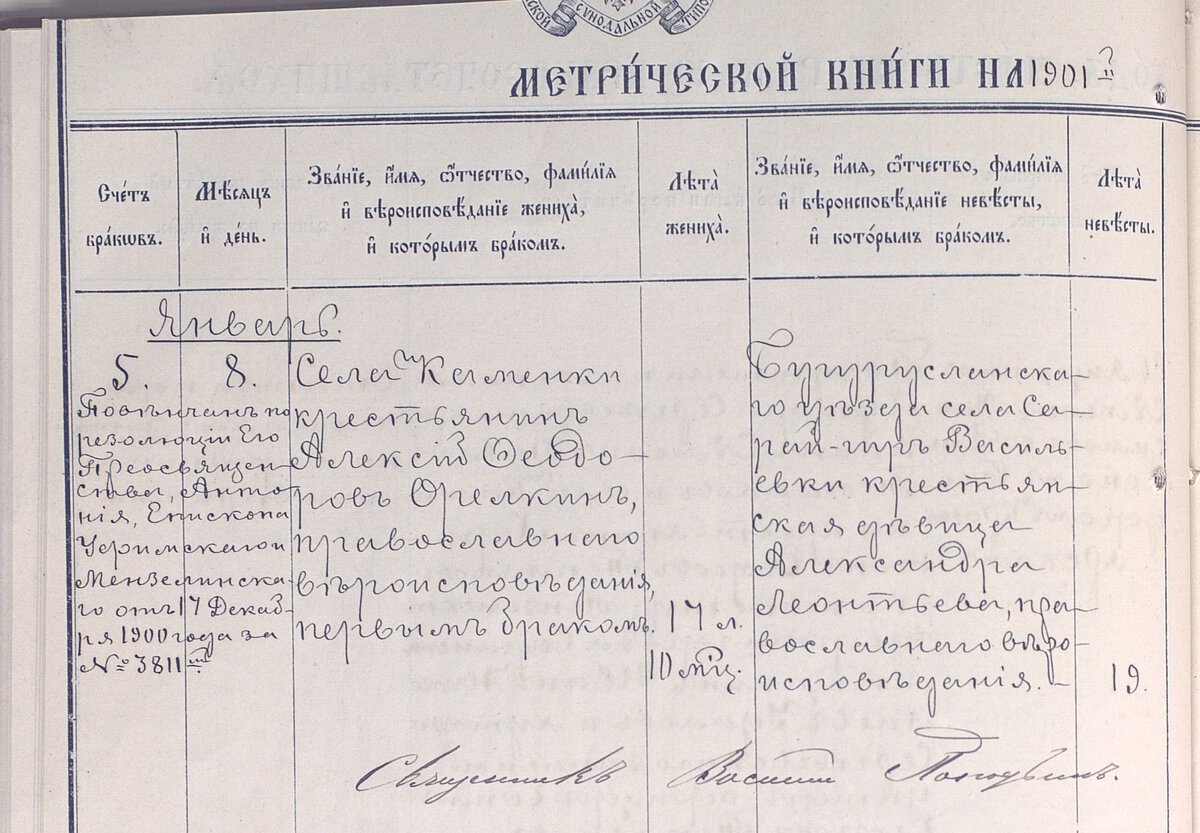 СѴНОДАЛЬНОЙ
МЕТРИ́ЧЕСКОЙ КНИ́ГИ НА 1901
Сче́тъ
бра́кѡвъ.
Мѣ́сяцъ
и҆ де́нь.
Зва́нїе, и҆́мя, ѻ҆́тчество, фами́лїя
и҆ вѣроисповѣ́данїе жениха̀,
и҆ кото́рымъ бра́комъ.
Лѣ́та̀
жениха̀.
Зва́нїе, и҆́мя, ѻ҆́тчество, фами́лїя
и҆ вѣроисповѣ́данїе невѣ́сты,
и҆ кото́рымъ бра́комъ.
Лѣ́та̀
невѣ́сты.
Январь.
5.
Повѣнчанъ по
резолюціи Его
Преосвящен-
ства, Анто-
нія, Епископа
Уфимскаго и
Мензелинска-
го отъ 17 Декаб-
ря 1900 года за
№ 3811
8.
Села Каменки
крестьянинъ
Алексій Ѳеодо-
ровъ Орелкинъ,
православнаго
вѣроисповѣданія,
первымъ бракомъ.
17 л.
10 мц.
Бугурусланска-
го уѣзда села Са-
рай-гиръ Василь-
евки крестьян-
ская дѣвица
Александра
Леонтьева, пра-
вославнаго вѣро-
исповѣданія. -
19.
Священникъ Василій